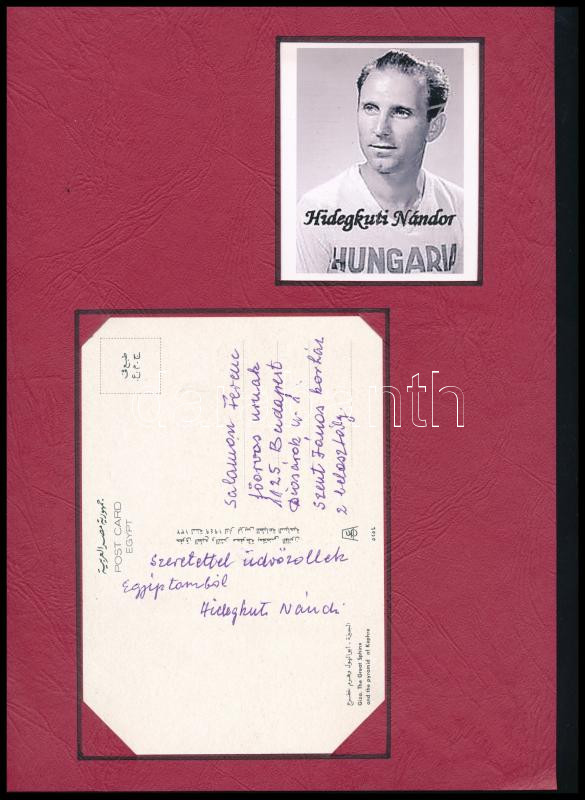 Hidegkuti Nándor
HUNGARIA
Salamon Ferenc
főorvos úrnak
1125. Budapest
Diósárok u. 1.
Szent János kórház
2 belosztály.
جمهورية مصر العربية
POST CARD
EGYPT
Szeretettel üdvözöllek
Egyiptomból
Hidegkuti Nándi
Giza. The Great Sphinx
and the pyramid of Kephre